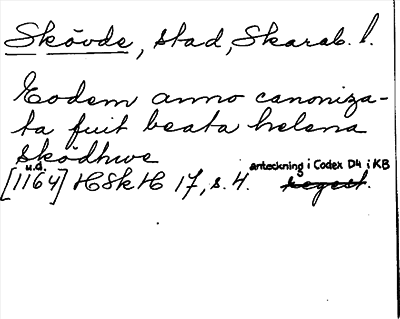 Skövde, stad, Skarab. l.
Eodem anno canoniza-
ta fuit beata helena
sködhwe
u.d.
[1164] HSkH 17, s. 4. anteckning i Codex D4 i KB
regest.